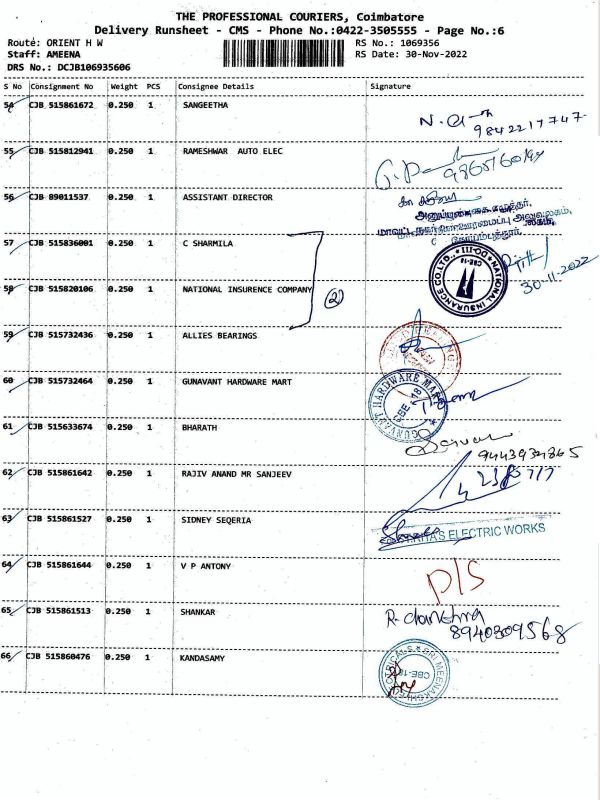 THE PROFESSIONAL COURIERS, Coimbatore
Delivery Runsheet - CMS - Phone No.:0422-3505555 - Page No.:6
Route: ORIENT H W RS No.: 1069356
Staff: AMEENA RS Date: 30-Nov-2022
DRS No.: DCJB106935606
S No Consignment No Weight PCS Consignee Details Signature
54 CJB 515861672 0.250 1 SANGEETHA
9842217747
55 CJB 515812941 0.250 1 RAMESHWAR AUTO ELEC
56 CJB 89011537 0.250 1 ASSISTANT DIRECTOR
57 CJB 515836001 0.250 1 C SHARMILA
58 CJB 515820106 0.250 1 NATIONAL INSURENCE COMPANY
2
NATIONAL INSURANCE CO LTD., DO-III
30-11-2022
59 CJB 515732436 0.250 1 ALLIES BEARINGS
60 CJB 515732464 0.250 1 GUNAVANT HARDWARE MART
GUNVANT HARDWARE MART
61 CJB 515633674 0.250 1 BHARATH
62 CJB 515861642 0.250 1 RAJIV ANAND MR SANJEEV
63 CJB 515861527 0.250 1 SIDNEY SEQERIA
ELECTRIC WORKS
64 CJB 515861644 0.250 1 V P ANTONY
D/S
65 CJB 515861513 0.250 1 SHANKAR
8940309568
66 CJB 515860476 0.250 1 KANDASAMY